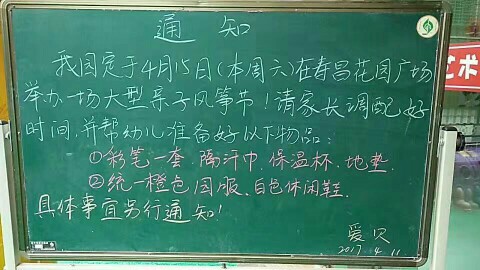 通知
我园定于4月15日(本周六)在寿昌花园广场
举办一场大型亲子风筝节!请家长调配好
时间,并帮幼儿准备好以下物品:
①彩笔一套、隔汗巾、保温杯、地垫、
②统一橙色园服、白色休闲鞋、
具体事宜另行通知!
爱贝
2017.4.11
艺术